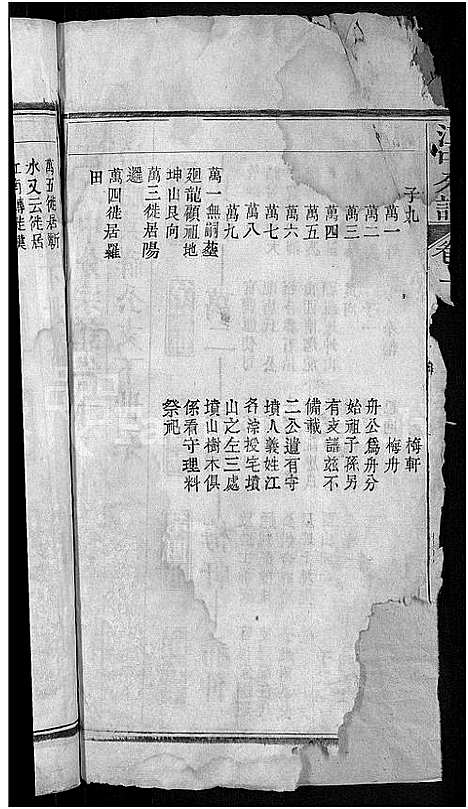 子九
萬一
萬二
萬三
萬四
萬五
萬六
萬七
萬八
萬九
萬一無嗣墓
廻龍顧祖地
坤山艮向
萬三徙居陽
邏
萬四徙居羅
田
梅軒
梅舟
舟公爲舟分
始祖子孫另
有支譜茲不
備載
二公遺有守
墳人義姓江
名淙授宅墳
山之左三處
墳山樹木俱
係看守理料
祭祀
萬五徙居蘄
水又云徙居